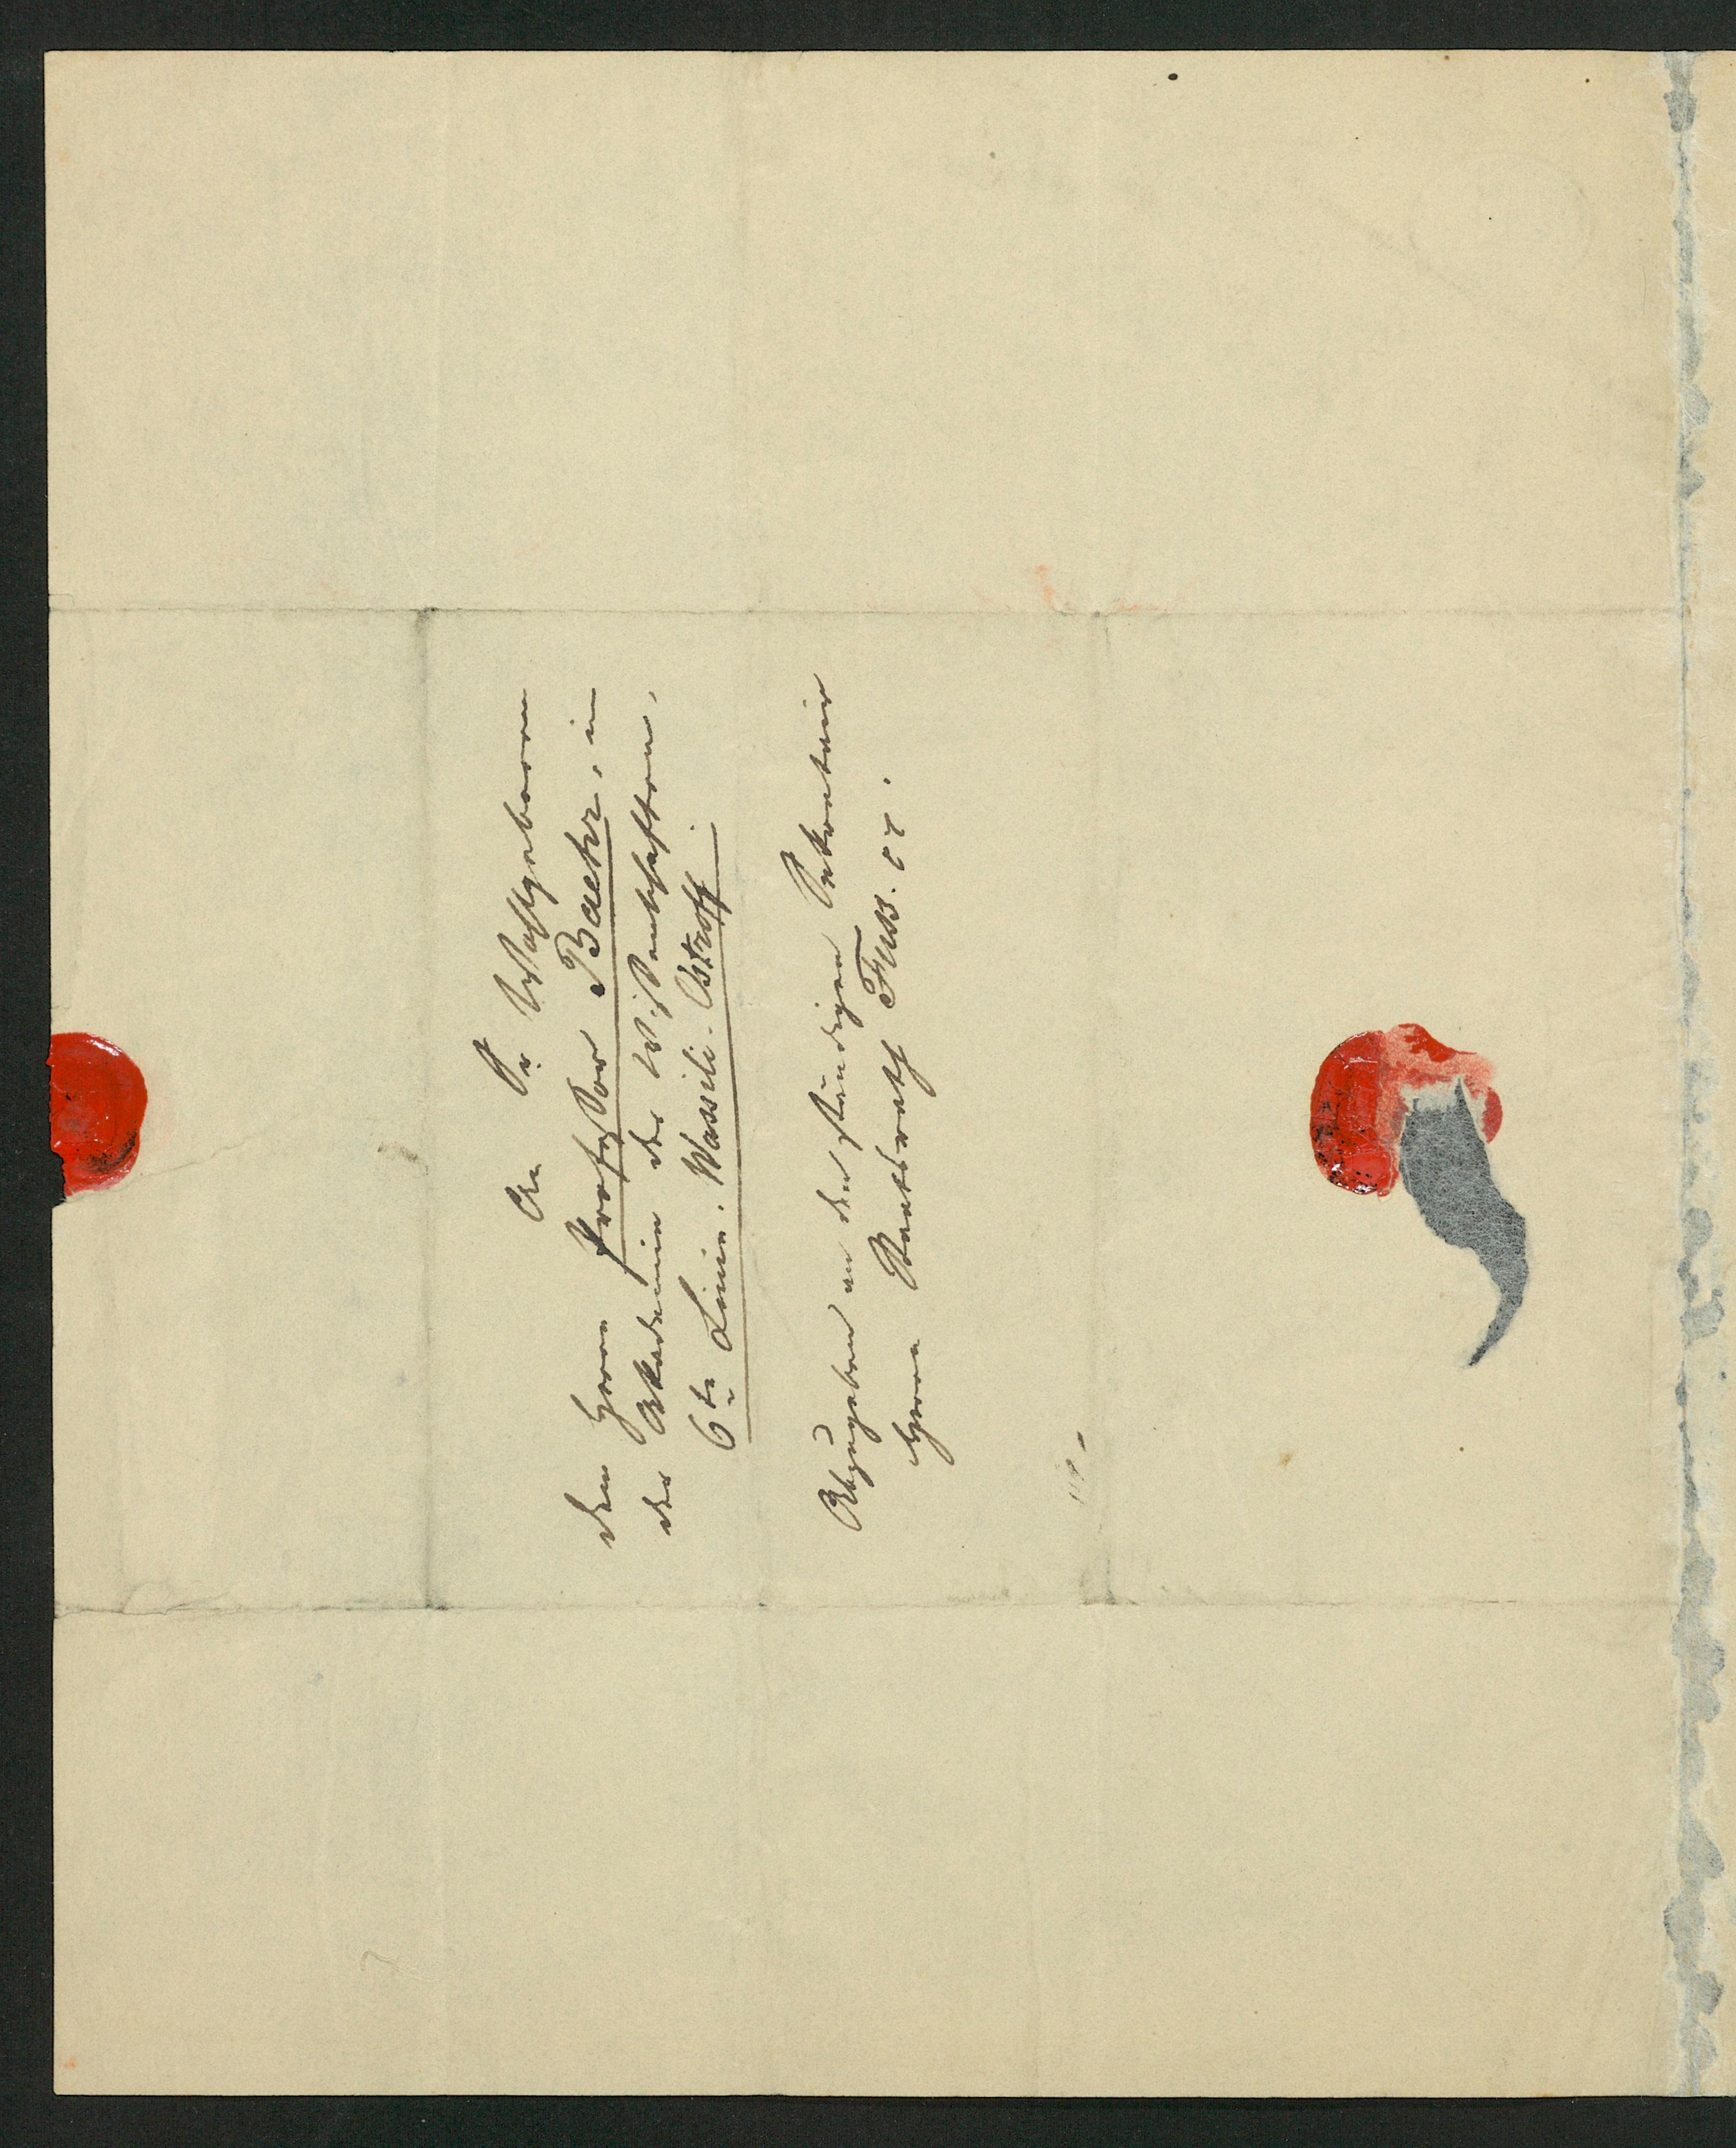 An Sr Wohlgeboren
den Herrn Professor Baehr, in
der Akademie der Wissenschaften,
6te Linie. Wassili-Ostroff.
Abzugeben an den ständigen Sekretair
Herrn Staatsrath Fuss. etc.